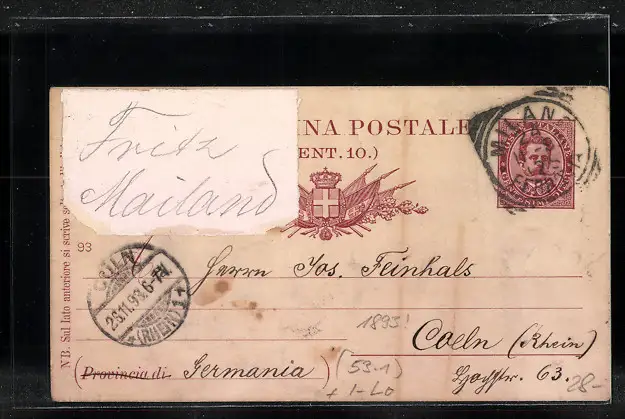 Fritz
Mailand
INA POSTALE
ENT. 10.)
MILANO
93
CÖLN
26.11.93.6-7N.
(RHEIN) 1
Herrn Jos. Feinhals
1893!
Coeln (Rhein)
(Provincia di Germania)
(53-1)
+ 1-LO
63.
28-
NB. Sul lato anteriore si scrive